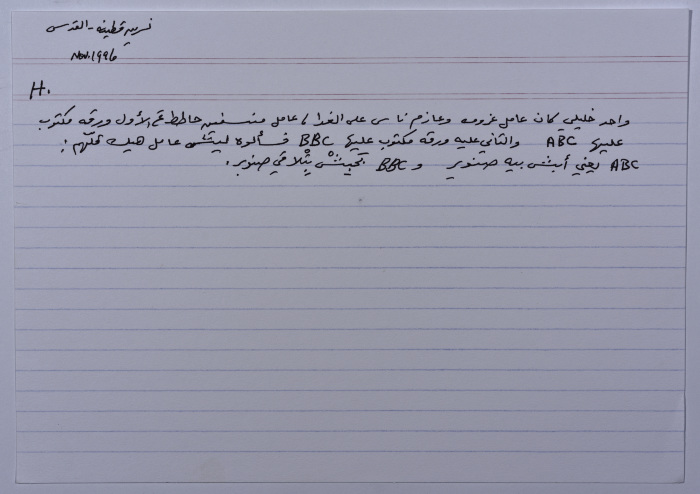 نسرين قطينه - القدس
Nov. 1996
H.
واحد خليلي كمان عامل عزومه وعازم ناس على الغدا، عامل منسفين حاطط ع الأول ورقه مكتوب
عليها ABC والثاني عليه ورقه مكتوب عليها BBC فسألوه ليش عامل هيك قلهم:
ABC يعني أبش بيه صنوبر و BBC بحبش بتلاقي صنوبر.